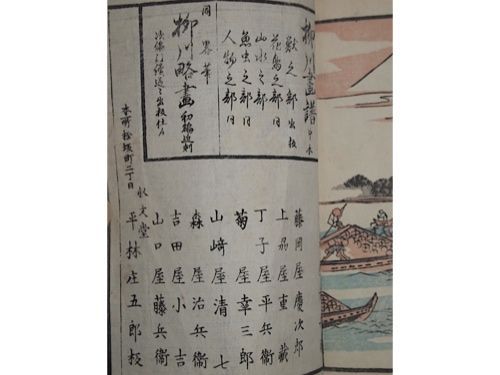 柳川畫譜 中本
獣之部 出板
花鳥之部 同
山水之部 同
魚虫之部 同
人物之部 同
柳川略畫 初編
藤岡屋慶次郎
上州屋重蔵
丁子屋平兵衞
菊屋幸三郎
山﨑屋清七
森屋治兵衞
吉田屋小吉
山口屋藤兵衞
永文堂
平林庄五郎板
本所松坂町二丁目